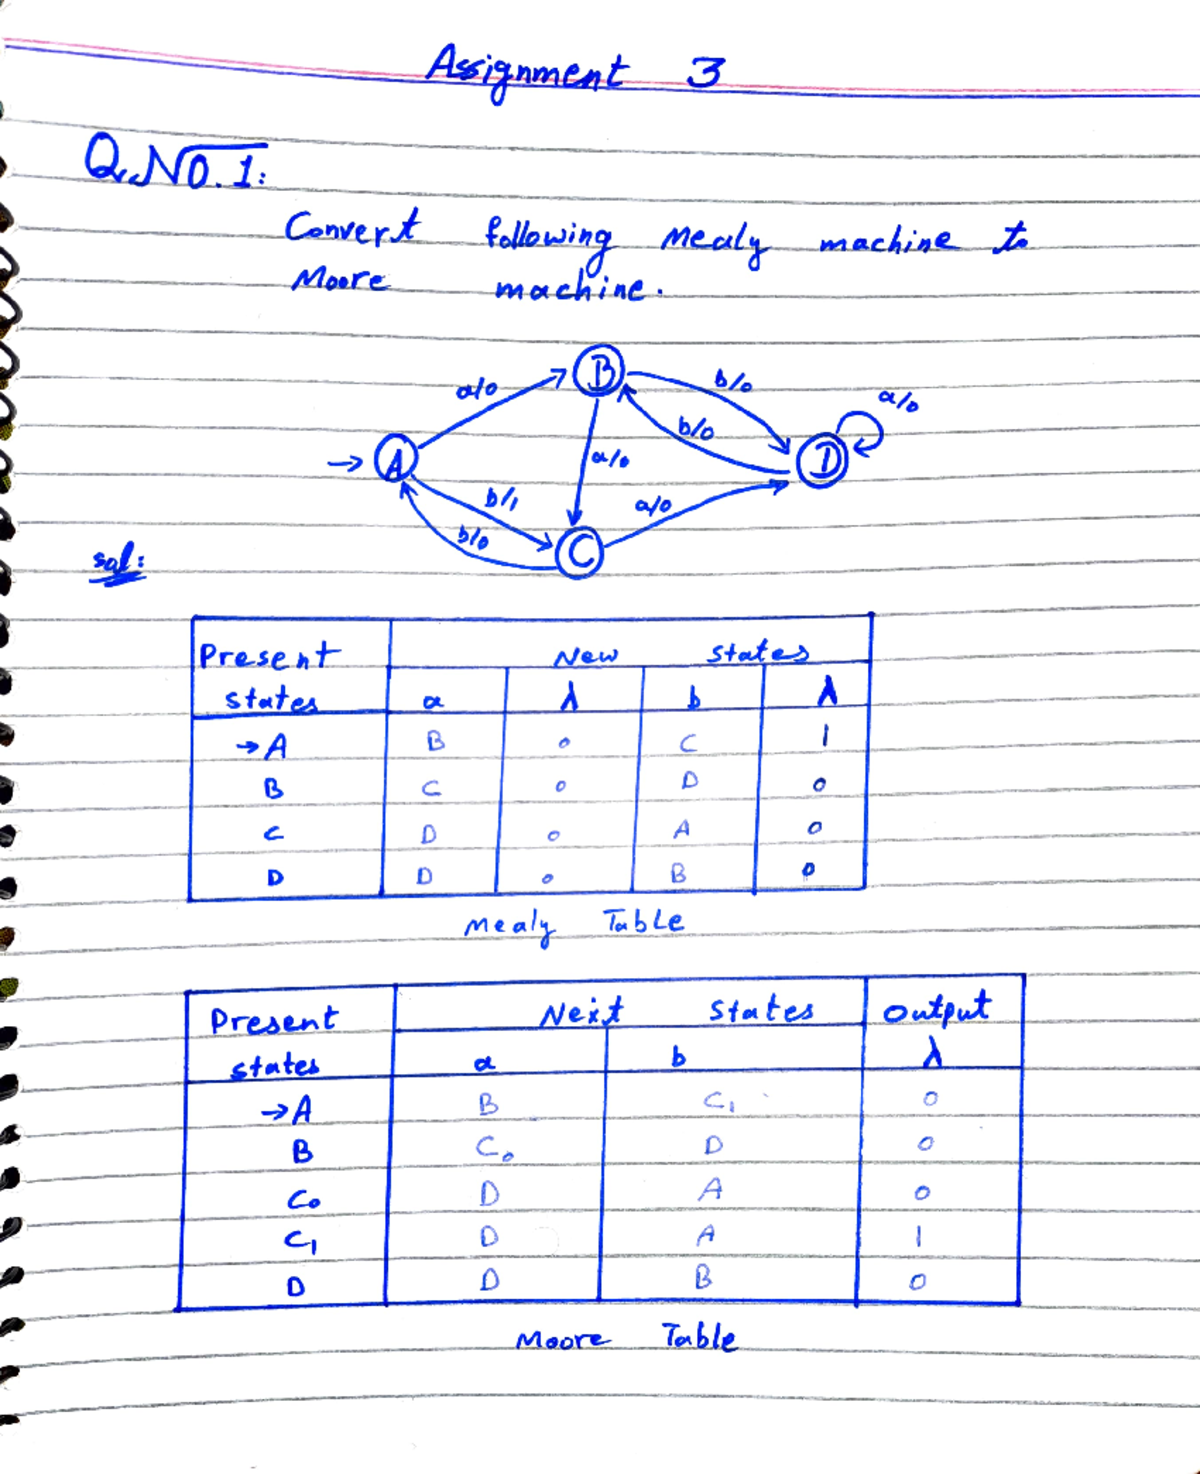 Assignment 3
Q.NO.1:
Convert following mealy machine to
Moore machine.
B
a/0
b/0
a/0
b/0
A
a/0
D
b/1
a/0
b/0
C
sol:
Present New states
states a λ b λ
→A B 0 C 1
B C 0 D 0
C D 0 A 0
D D 0 B 0
Mealy Table
Present Next States output
states a b λ
→A B C₁ 0
B C₀ D 0
C₀ D A 0
C₁ D A 1
D D B 0
Moore Table